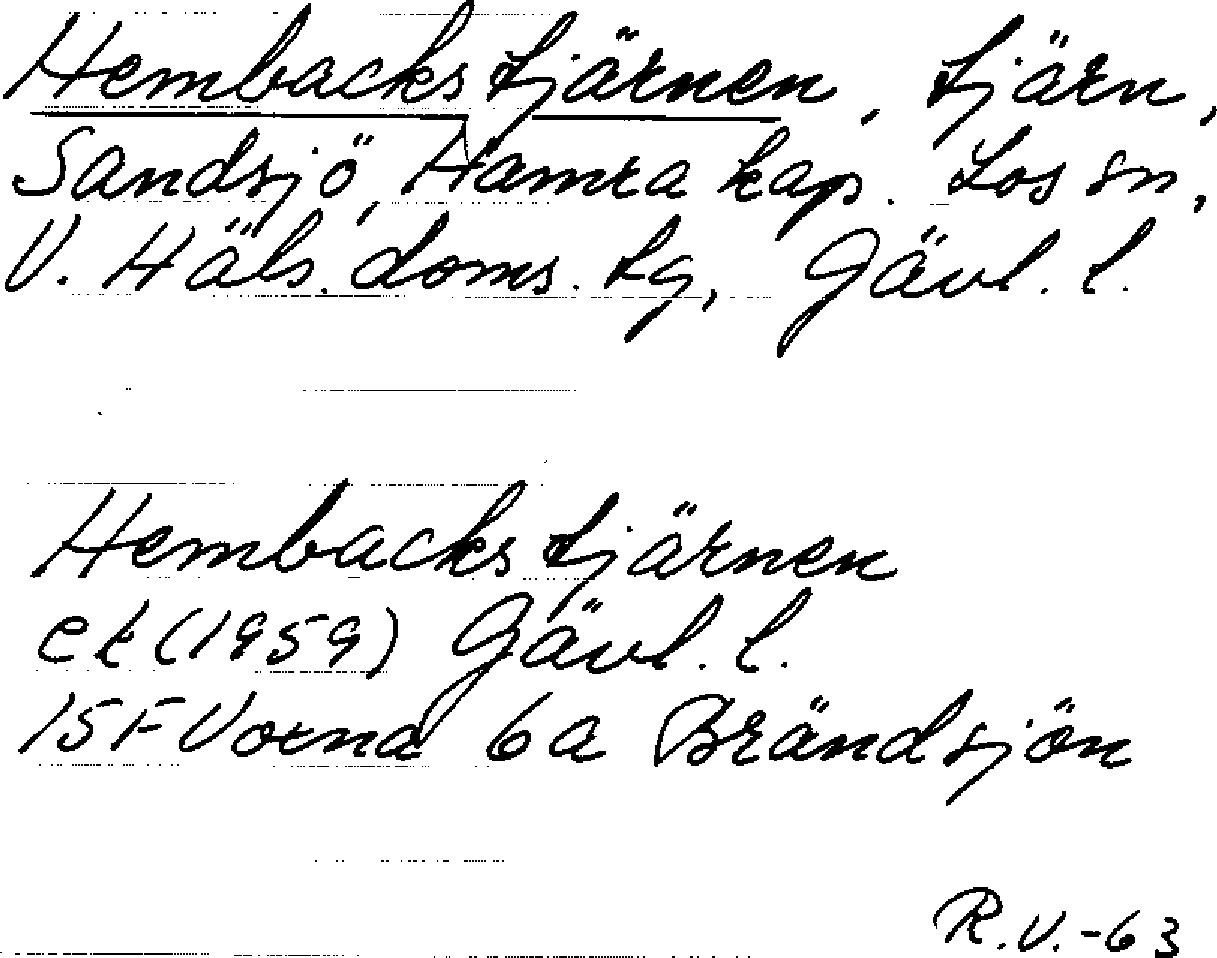 Hembackstjärnen, tjärn,
Sandsjö, Hamra kap. Los sn,
V. Häls. doms. tg, Gävl. l.
Hembackstjärnen
ek (1959) Gävl. l.
15F Voxna 6a Brändsjön
R.V.-63